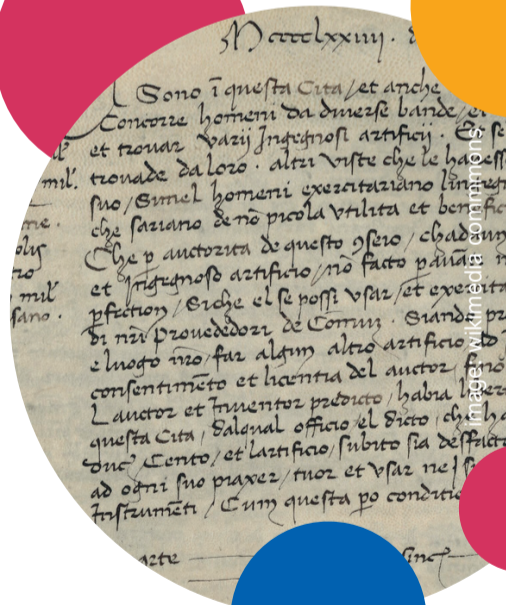 MccccLxxiiii.
Sono ī questa Cita, et anche
Concorre homeni da diuerse bande, et
et trouar varij Ingegnosi artificij. Et se
trouade da loro. altri viste che le hauess
suo, Simel homeni exercitariano lingegn
che sariano de nō picola vtilita et benefic
Che p auctorita de questo 9seio, chadaun
et Ingegnoso artificio, nō facto pauanti
pfection, Siche el se possi vsar, et exercita
di nr̄i Prouededori de Comun. Siando pr
e luogo nro, far algun altro artificio, ad
consentimēto et licentia del auctor, fino
Lauctor et Inuentor predicto, habia liber
questa Cita, dalqual officio el dicto, che ha
duc̄ Cento, et lartificio, subito sia desfacto
ad ogni suo piaxer, tuor et vsar ne i s
Instrumēti, Cum questa po conditi
mil.
me.
olis
ro
mil
sano.
arte
sinc
image: wikimedia commons: